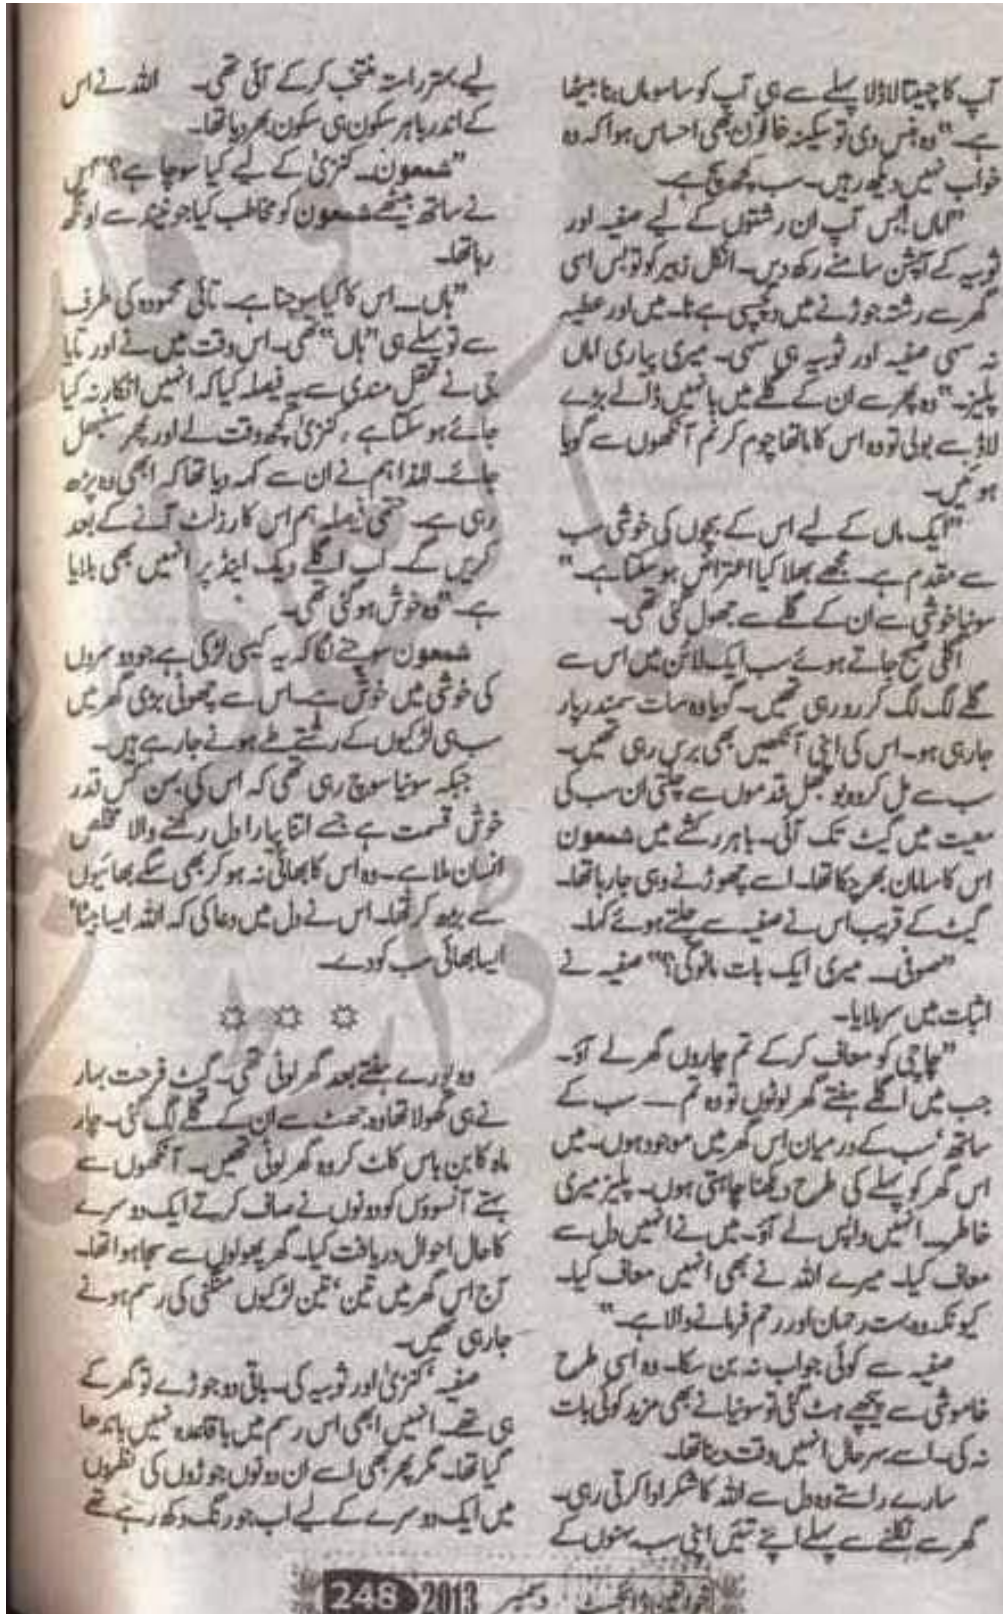 آپ کا چہیتا لاڈلا پہلے سے ہی آپ کو ساسو ماں بنا بیٹھا
ہے۔" وہ ہنس دی تو سکینہ خاتون بھی احساس ہوا کہ وہ
خواب نہیں دیکھ رہیں۔ سب کچھ سچ ہے۔
"اماں! بس آپ ان رشتوں کے لیے صفیہ اور
ثوبیہ کے آپشن سامنے رکھ دیں۔ انکل زبیر کو تو بس اسی
گھر سے رشتہ جوڑنے میں دلچسپی ہے نا۔ میں اور عطیہ
نہ سہی صفیہ اور ثوبیہ ہی سہی۔ میری پیاری اماں
پلیز۔" وہ پھر سے ان کے گلے میں بانہیں ڈالے بڑے
لاڈ سے بولی تو وہ اس کا ماتھا چوم کر نم آنکھوں سے گویا
ہوئیں۔
"ایک ماں کے لیے اس کے بچوں کی خوشی سب
سے مقدم ہے۔ مجھے بھلا کیا اعتراض ہو سکتا ہے۔"
سونیا خوشی سے ان کے گلے سے جھول گئی تھی۔
اگلی صبح جاتے ہوئے سب ایک لائن میں اس سے
گلے لگ لگ کر رو رہی تھیں۔ گویا وہ سات سمندر پار
جا رہی ہو۔ اس کی اپنی آنکھیں بھی برس رہی تھیں۔
سب سے مل کر وہ بوجھل قدموں سے چلتی ان سب کی
معیت میں گیٹ تک آئی۔ باہر رکشے میں شمعون
اس کا سامان بھر چکا تھا۔ اسے چھوڑنے وہی جا رہا تھا۔
گیٹ کے قریب اس نے صفیہ سے چلتے ہوئے کہا۔
"صوفی۔ میری ایک بات مانو گی؟" صفیہ نے
اثبات میں سر ہلایا۔
"چاچی کو معاف کر کے تم چاروں گھر لے آؤ۔
جب میں اگلے ہفتے گھر لوٹوں تو وہ تم — سب کے
ساتھ' سب کے درمیان اس گھر میں موجود ہوں۔ میں
اس گھر کو پہلے کی طرح دیکھنا چاہتی ہوں۔ پلیز میری
خاطر۔ انہیں واپس لے آؤ۔ میں نے انہیں دل سے
معاف کیا۔ میرے اللہ نے بھی انہیں معاف کیا۔
کیونکہ وہ بہت رحمان اور رحم فرمانے والا ہے۔"
صفیہ سے کوئی جواب نہ بن سکا۔ وہ اسی طرح
خاموشی سے پیچھے ہٹ گئی تو سونیا نے بھی مزید کوئی بات
نہ کی۔ اسے بہرحال انہیں وقت دینا تھا۔
سارے راستے وہ دل سے اللہ کا شکر ادا کرتی رہی۔
گھر سے نکلنے سے پہلے اپنے تئیں اپنی سب بہنوں کے
لیے بہتر راستہ منتخب کر کے آئی تھی۔ اللہ نے اس
کے اندر باہر سکون ہی سکون بھر دیا تھا۔
"شمعون۔ کنزیٰ کے لیے کیا سوچا ہے؟" اس
نے ساتھ بیٹھے شمعون کو مخاطب کیا جو نیند سے اونگھ
رہا تھا۔
"ہاں۔ اس کا کیا سوچنا ہے۔ تائی محمودہ کی طرف
سے تو پہلے ہی "ہاں" تھی۔ اس وقت میں نے اور تایا
جی نے عقل مندی سے یہ فیصلہ کیا کہ انہیں انکار نہ کیا
جائے ہو سکتا ہے، کنزیٰ کچھ وقت لے اور پھر سنبھل
جائے۔ لہٰذا ہم نے ان سے کہہ دیا تھا کہ ابھی وہ پڑھ
رہی ہے۔ حتمی فیصلہ ہم اس کا رزلٹ آنے کے بعد
کریں گے۔ اب اگلے ویک اینڈ پر انہیں بھی بلایا
ہے۔" وہ خوش ہو گئی تھی۔
شمعون سوچنے لگا کہ یہ کیسی لڑکی ہے جو دوسروں
کی خوشی میں خوش ہے۔ اس سے چھوٹی بڑی گھر میں
سب ہی لڑکیوں کے رشتے طے ہونے جا رہے ہیں۔
جبکہ سونیا سوچ رہی تھی کہ اس کی بہن کس قدر
خوش قسمت ہے جسے اتنا پیارا دل رکھنے والا مخلص
انسان ملا ہے۔ وہ اس کا بھائی نہ ہو کر بھی سگے بھائیوں
سے بڑھ کر تھا۔ اس نے دل میں دعا کی کہ اللہ ایسا بیٹا'
ایسا بھائی سب کو دے۔
وہ پورے ہفتے بعد گھر لوٹی تھی۔ گیٹ فرحت بہار
نے ہی کھولا تھا وہ جھٹ سے ان کے گلے لگ گئی۔ چار
ماہ کا بن باس کاٹ کر وہ گھر لوٹی تھیں۔ آنکھوں سے
بہتے آنسوؤں کو دونوں نے صاف کرتے ایک دوسرے
کا حال احوال دریافت کیا۔ گھر پھولوں سے سجا ہوا تھا۔
آج اس گھر میں تین' تین لڑکیوں منگنی کی رسم ہونے
جا رہی تھیں۔
صفیہ' کنزیٰ اور ثوبیہ کی۔ باقی دو جوڑے تو گھر کے
ہی تھے۔ انہیں ابھی اس رسم میں باقاعدہ نہیں باندھا
گیا تھا۔ مگر پھر بھی اسے ان دونوں جوڑوں کی نظروں
میں ایک دوسرے کے لیے اب جو رنگ دکھ رہے تھے
خواتین ڈائجسٹ دسمبر 2013 248